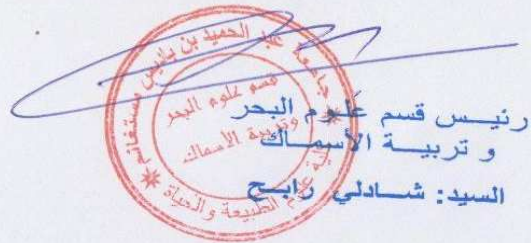 جامعة عبد الحميد بن باديس مستغانم
قسم علوم البحر
وتربية الأسماك
كلية علوم الطبيعة والحياة
رئيس قسم علوم البحر
و تربية الأسماك
السيد: شادلي رابح